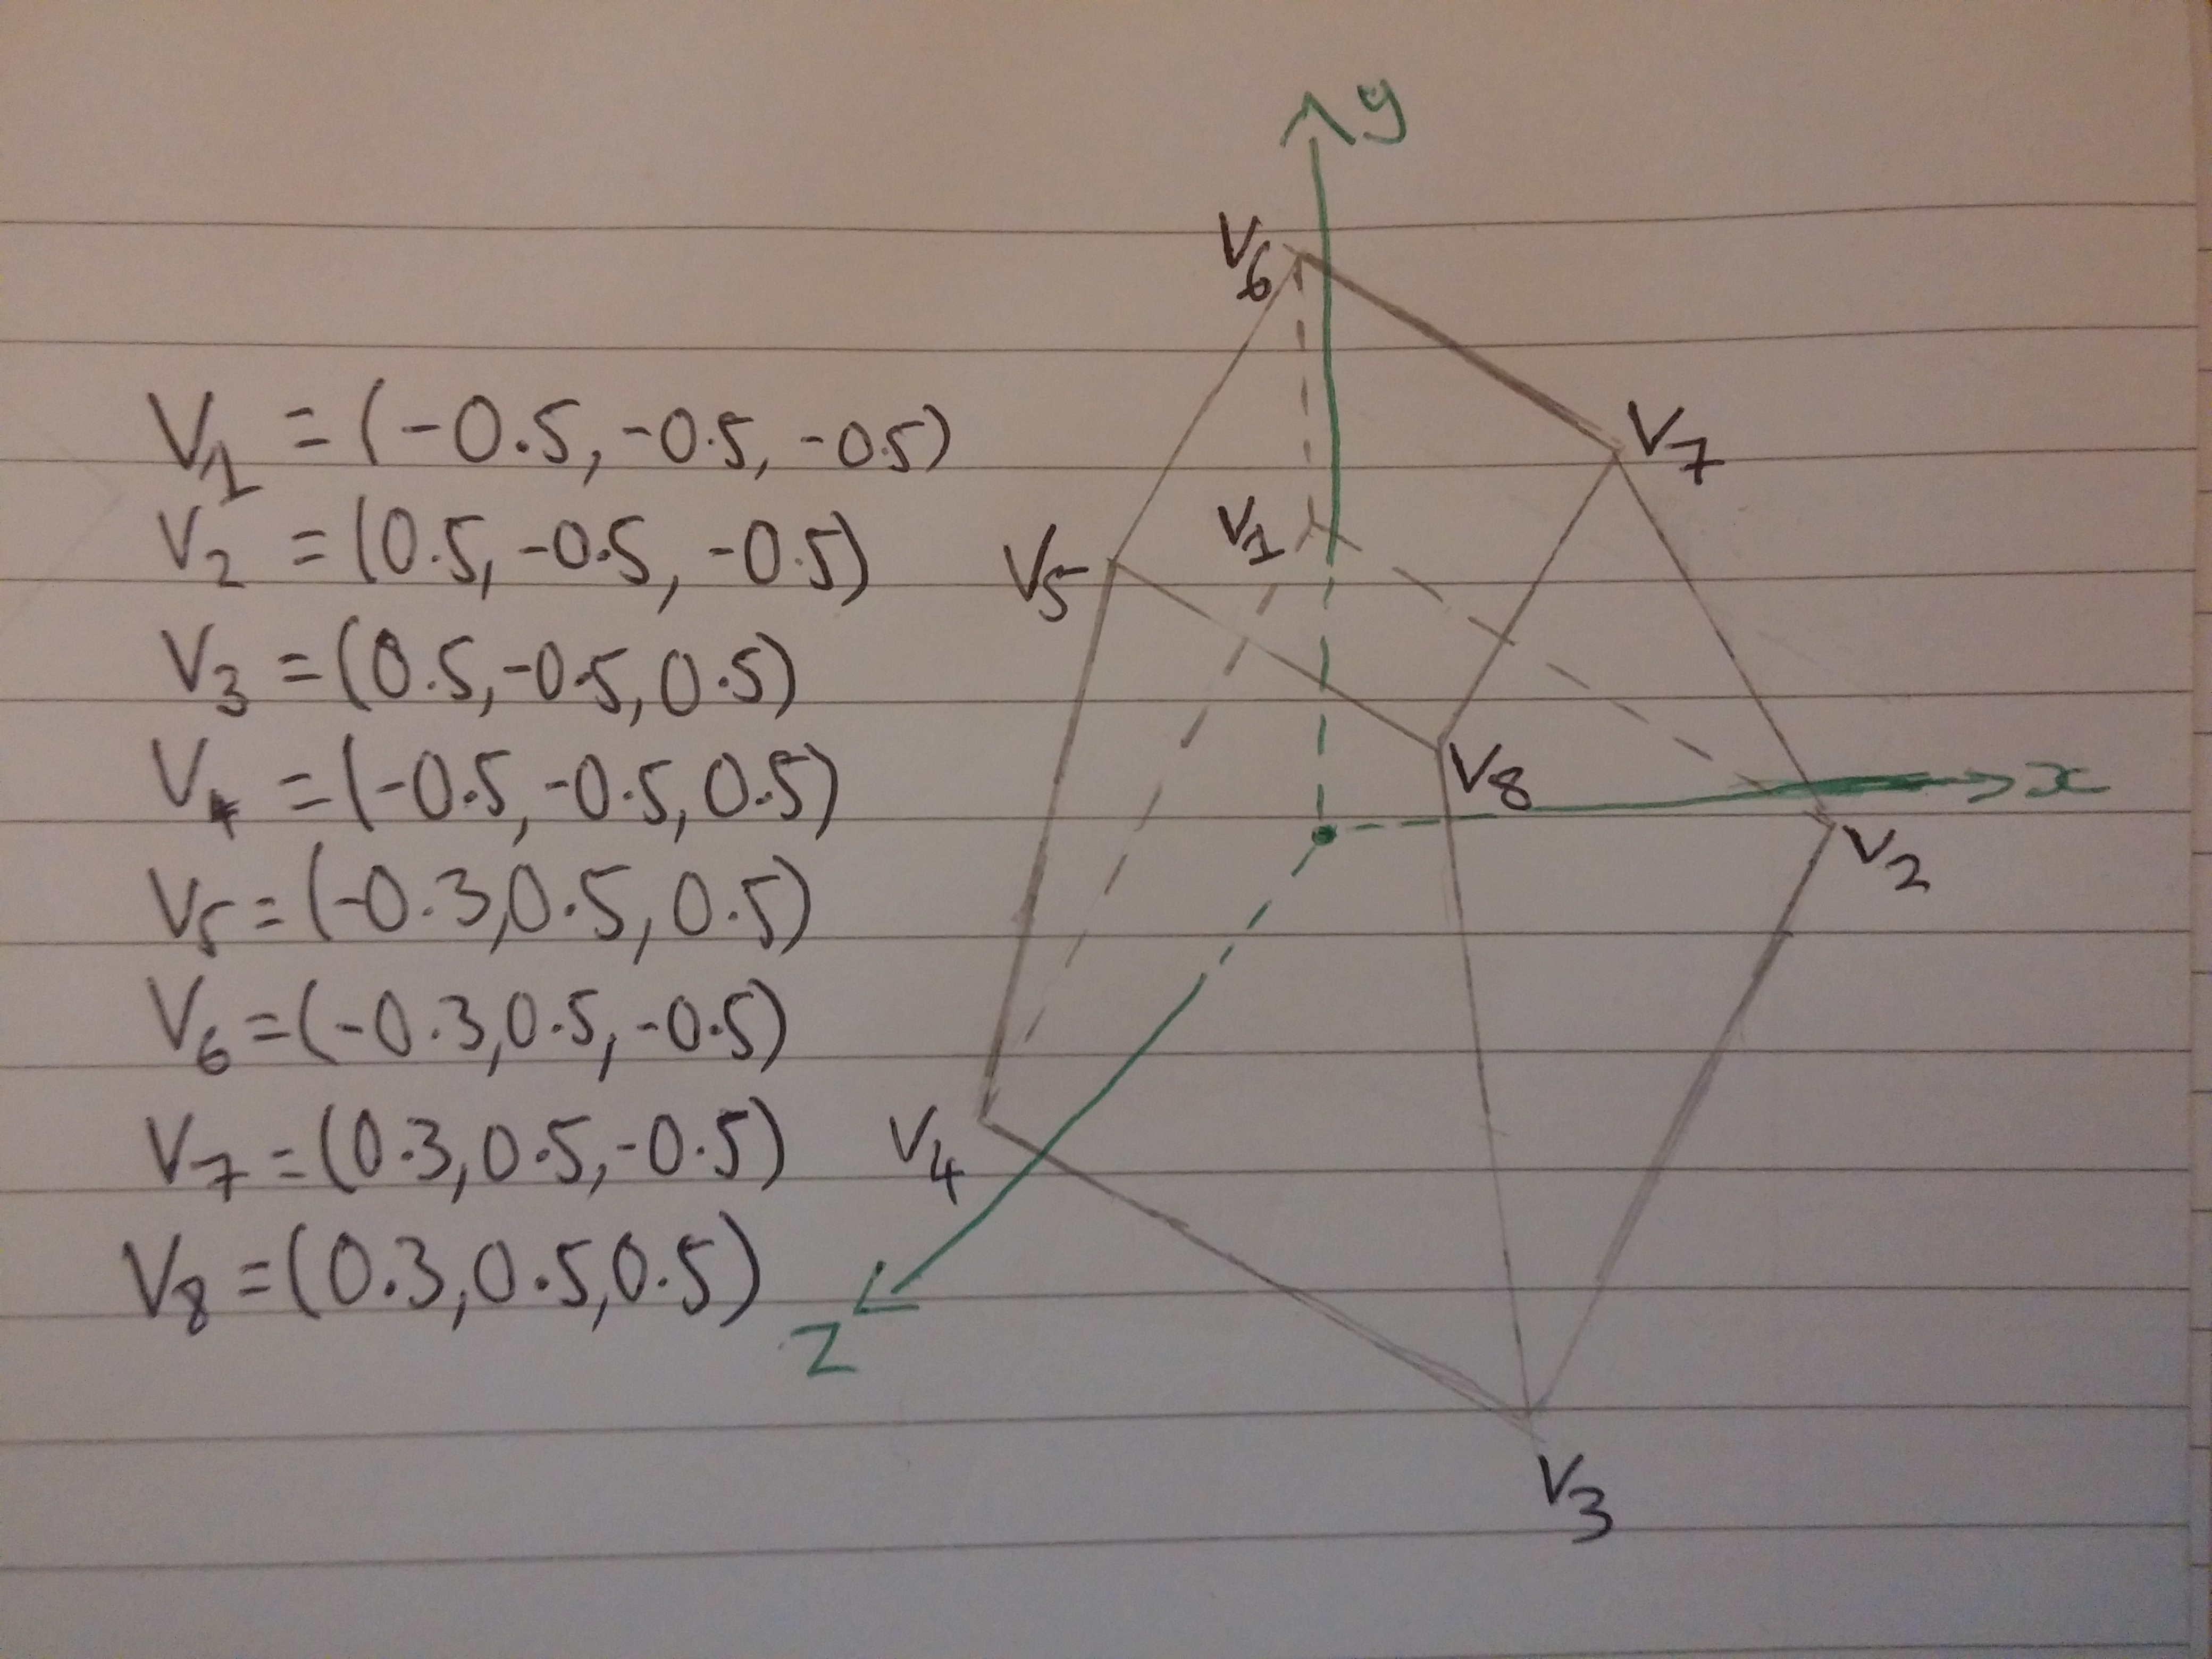 V1 = (-0.5, -0.5, -0.5)
V2 = (0.5, -0.5, -0.5)
V3 = (0.5, -0.5, 0.5)
V4 = (-0.5, -0.5, 0.5)
V5 = (-0.3, 0.5, 0.5)
V6 = (-0.3, 0.5, -0.5)
V7 = (0.3, 0.5, -0.5)
V8 = (0.3, 0.5, 0.5)
y
V6
V7
V1
V5
V8
x
V2
V4
z
V3